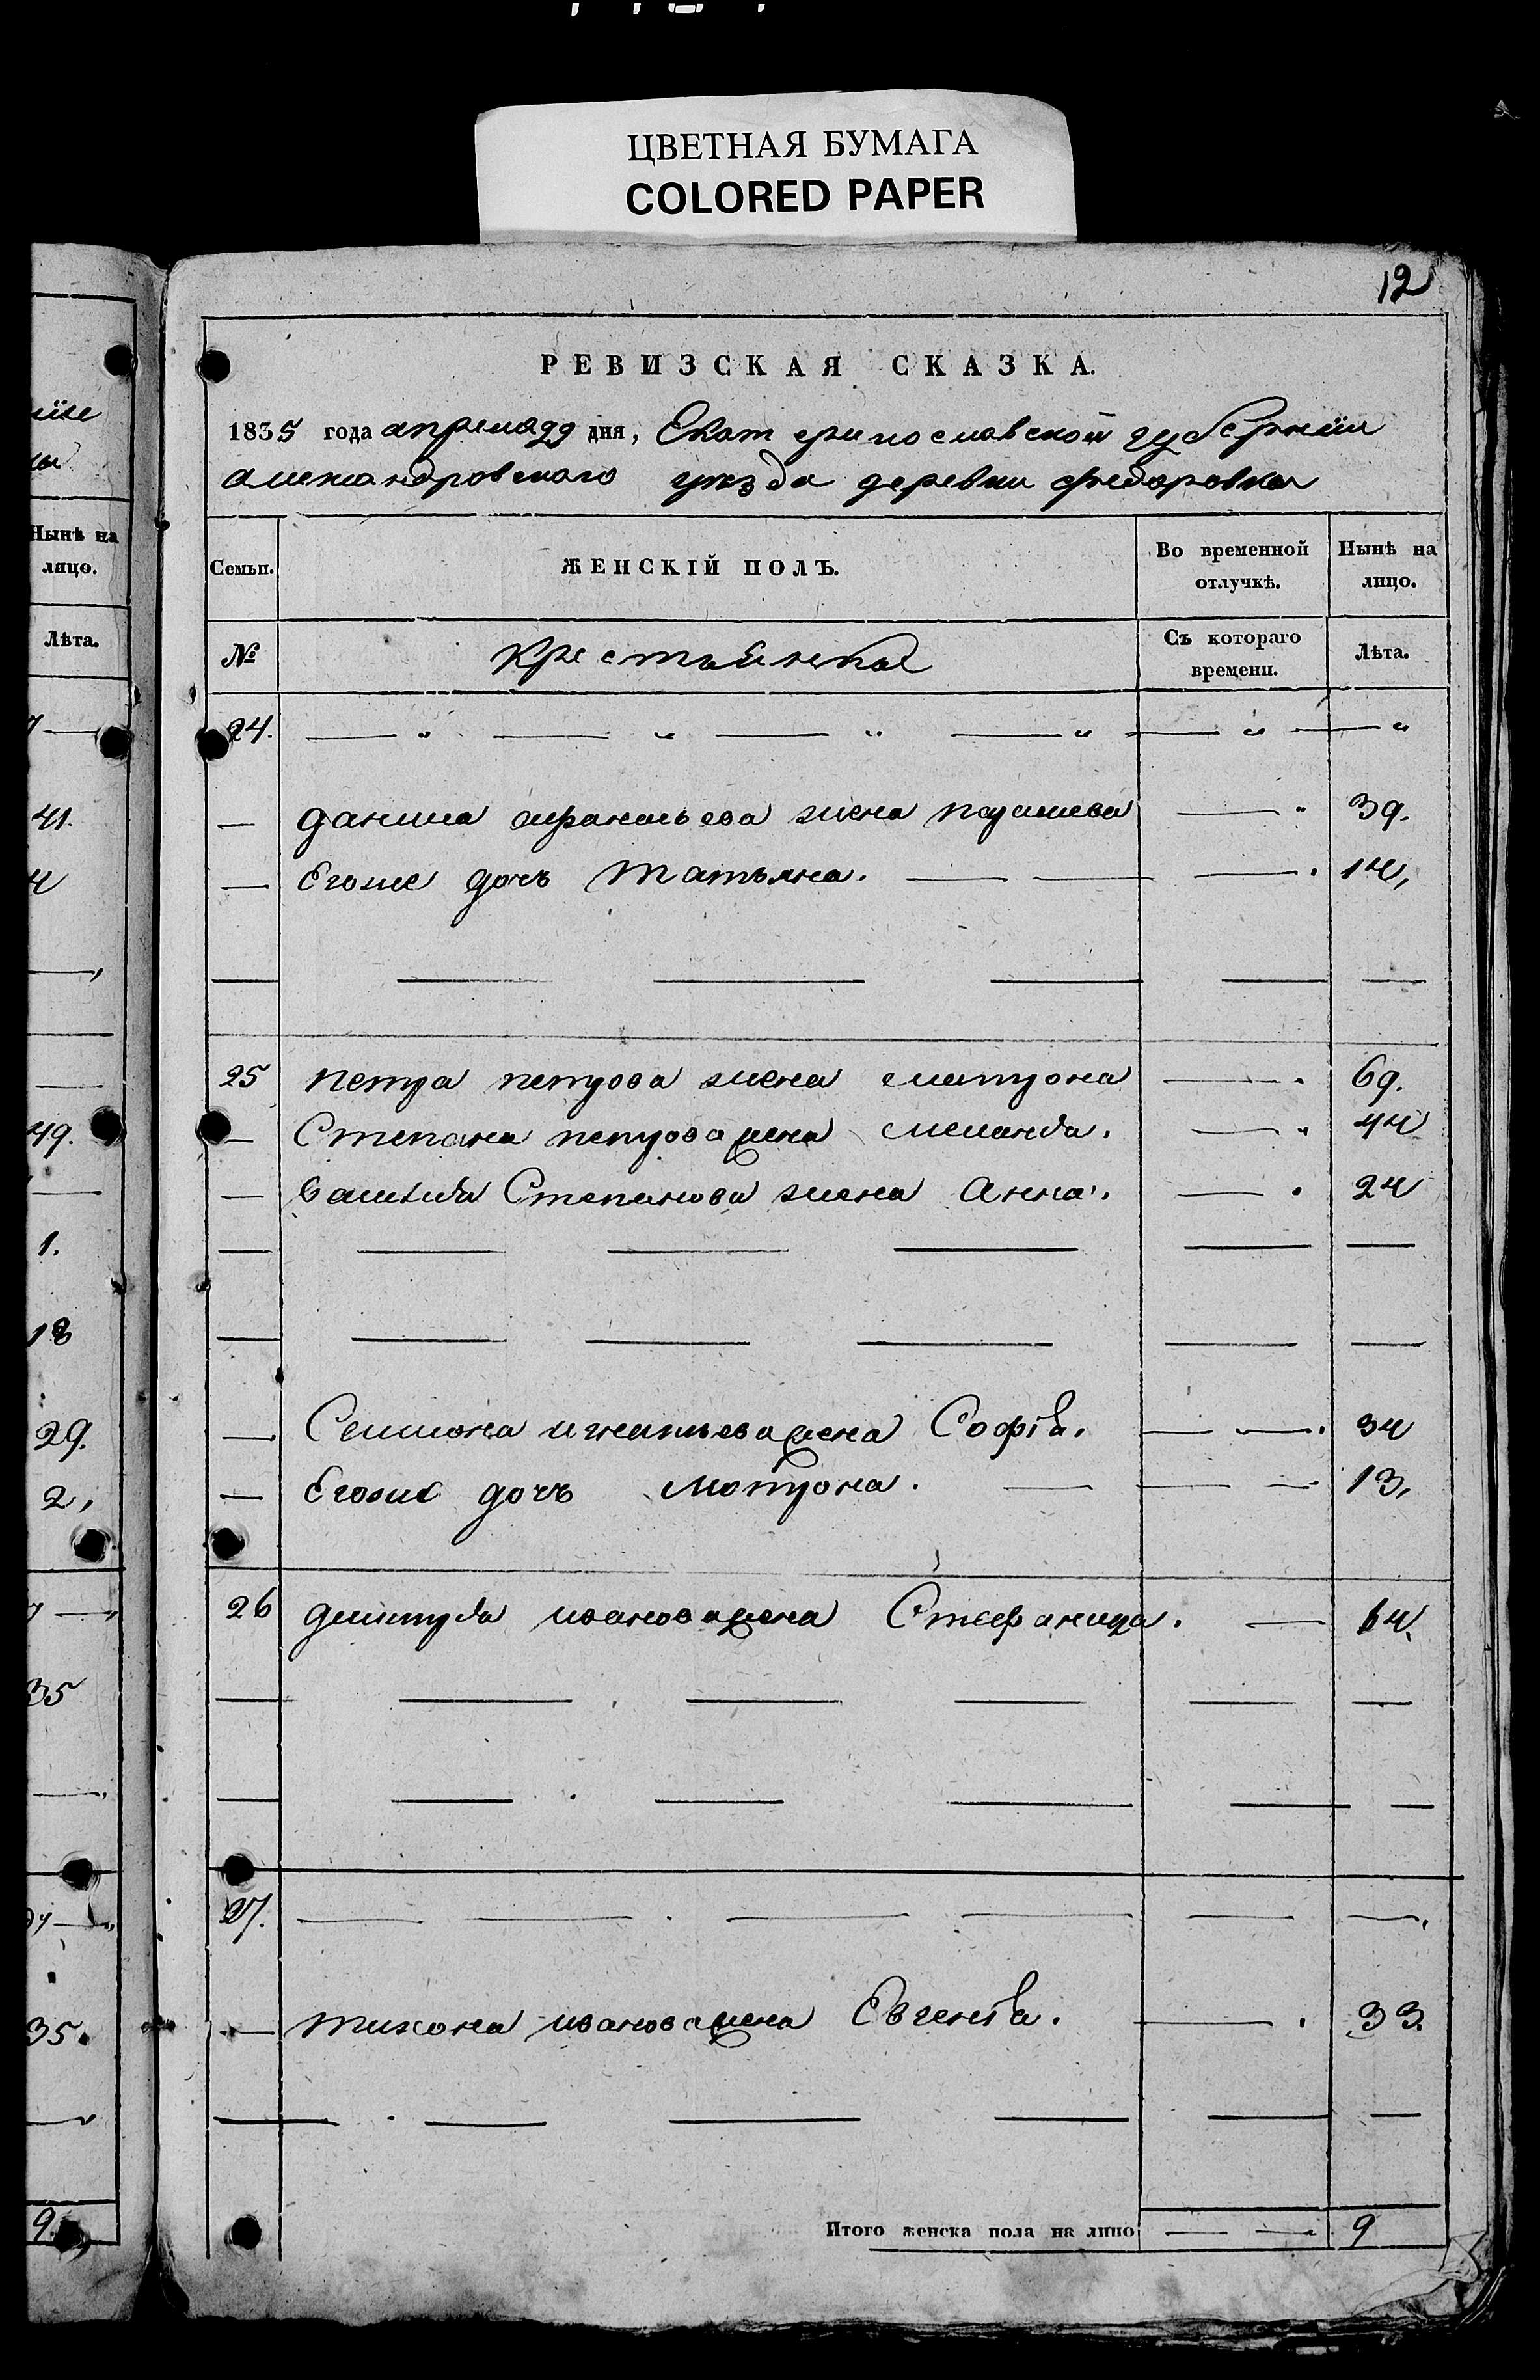 ЦВЕТНАЯ БУМАГА
COLORED PAPER
12
РЕВИЗСКАЯ СКАЗКА.
1835 года апреля 29 дня, Екатеринославской губернии
александровского уезда деревни федоровки
Нынѣ на лицо.
Лѣта.
Семьи. ЖЕНСКІЙ ПОЛЪ. Во временной отлучкѣ. Нынѣ на лицо.
№ Крестьянъ Съ котораго времени. Лѣта.
24.
— Данила жена 39.
— Егоже дочь Татьяна. 14,
25 Петра петрова жена матрона 69.
— Степана петрова жена меланія. 44
— василія Степанова жена Анна. 24
— Семиона игнатьева жена Софія. 34
— Егоже дочь матрона. 13,
26 дмитрія иванова жена Стефанида. 64.
27.
— тихона иванова жена Евгенія. 33.
Итого женска пола на лицо 9
41.
4
49.
1.
18
29.
2,
35
35.
9